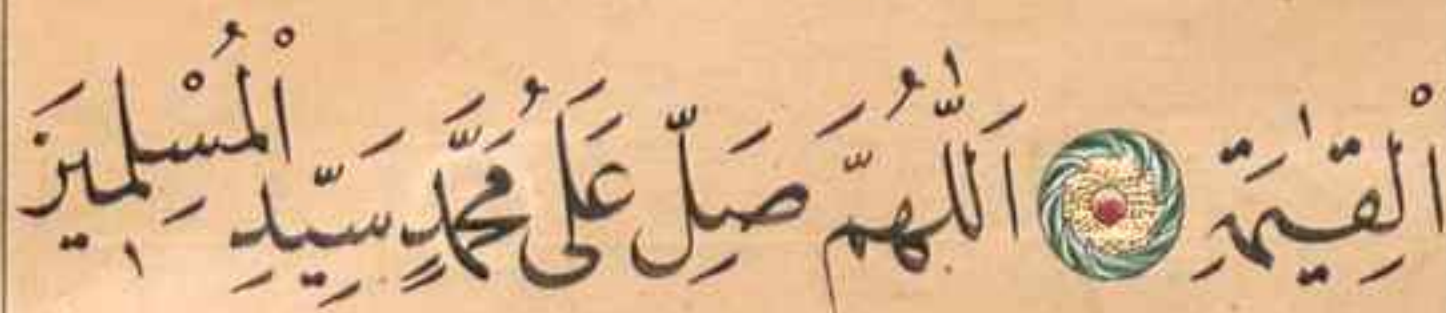 الْقِيٰمَةِ اَللّٰهُمَّ صَلِّ عَلَى مُحَمَّدٍ سَيِّدِ الْمُسْلِمِينَ